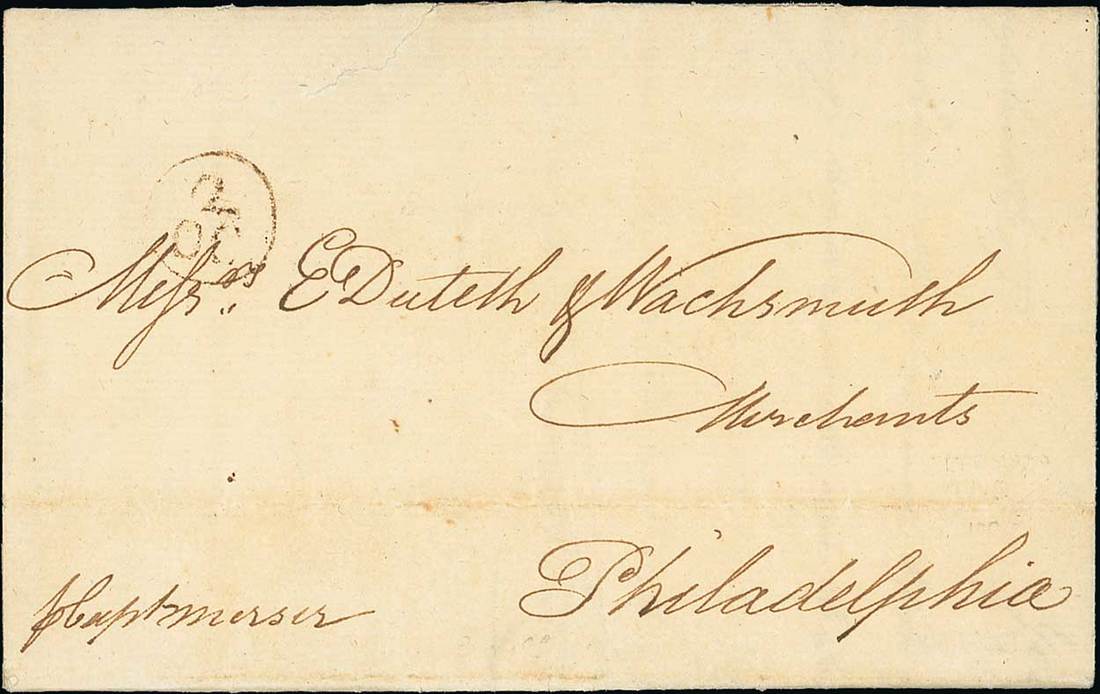 2
OC
Messrs. E Duteth & Wachsmuth
Merchants
Philadelphia
p Capt merser